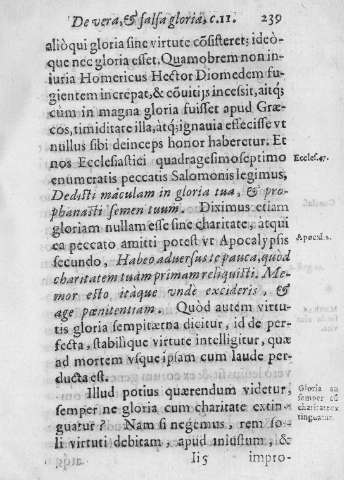 De vera, & falsa gloria, c.11. 239
aliòqui gloria sine virtute cõsisteret; ideò-
que nec gloria esset. Quamobrem non in-
iuria Homericus Hector Diomedem fu-
gientem increpat, & cõuitijs incessit, aitq́;
cùm in magna gloria fuisset apud Græ-
cos, timiditate illa, atq́; ignauia effecisse vt
nullus sibi deinceps honor haberetur. Et
nos Ecclesiastici quadragesimoseptimo
enumeratis peccatis Salomonis legimus,
Dedisti maculam in gloria tua, & pro-
phanasti semen tuum. Diximus etiam
gloriam nullam esse sine charitate, atqui
ea peccato amitti potest vt Apocalypsis
secundo, Habeo aduersus te pauca, quòd
charitatem tuam primam reliquisti. Me-
mor esto itaque vnde excideris, &
age pœnitentiam. Quòd autem virtu-
tis gloria sempiterna dicitur, id de per-
fecta, stabilique virtute intelligitur, quæ
ad mortem vsque ipsam cum laude per-
ducta est.
Illud potius quærendum videtur,
semper ne gloria cum charitate extin-
guatur? Nam si negemus, rem so-
li virtuti debitam, apud iniustum, &
Ii 5 impro-
Eccles. 47.
Apocal. 2.
Gloria an
semper cũ
charitate ex
tinguatur.